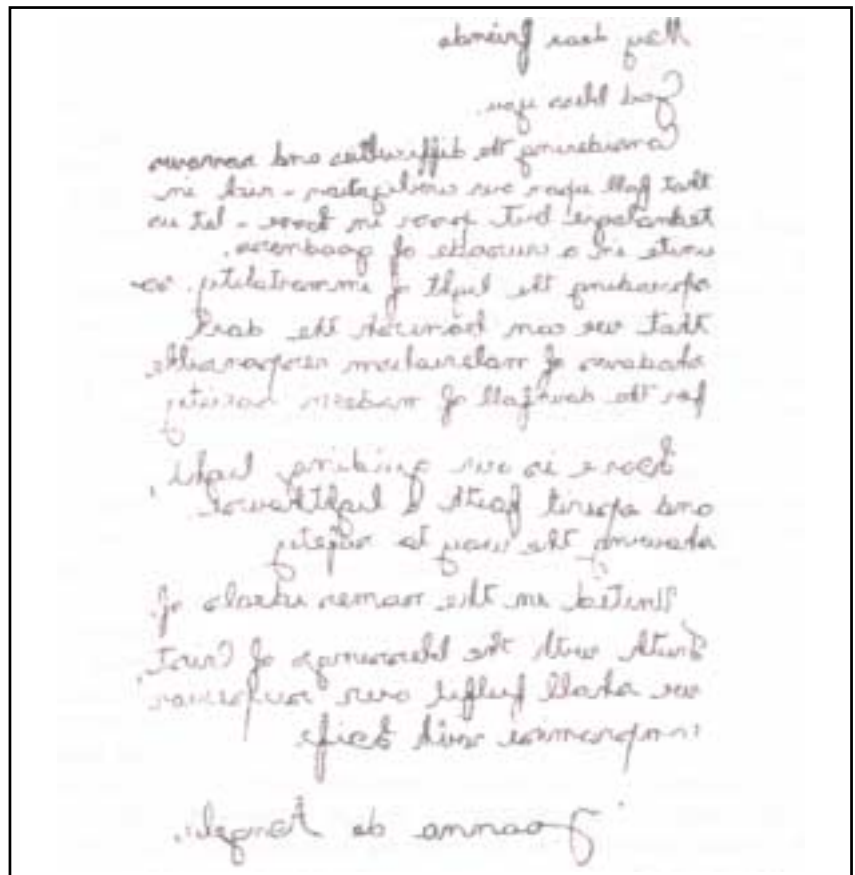 My dear Freinds
God bless you.
Considering the difficulties and sorrows
that fall upon our civilization - rich in
technologies but poor in love - let us
unite in a crusade of goodness,
spreading the light of immortality, so
that we can banish the dark
shadows of materialism responsible
for the downfall of modern society
Love is our guiding light,
and spirit faith a lighthouse
showing the way to safety
United in the same ideals of
Truth with the blessings of Crist,
we shall fulfill our superior
with
Joanna de Ângelis.